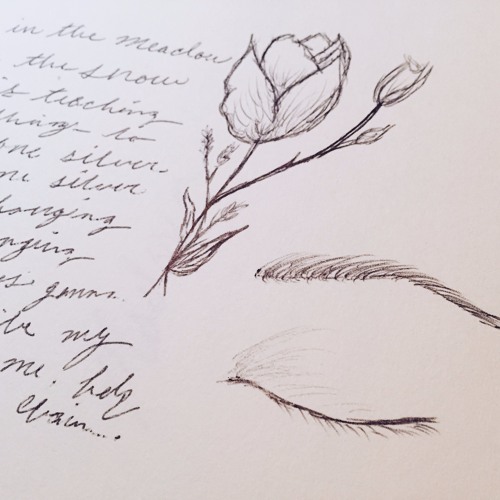 in the meadow
the snow
is teaching
thing to
one silver.
one silver
hanging
nging
gonna
my
me. help